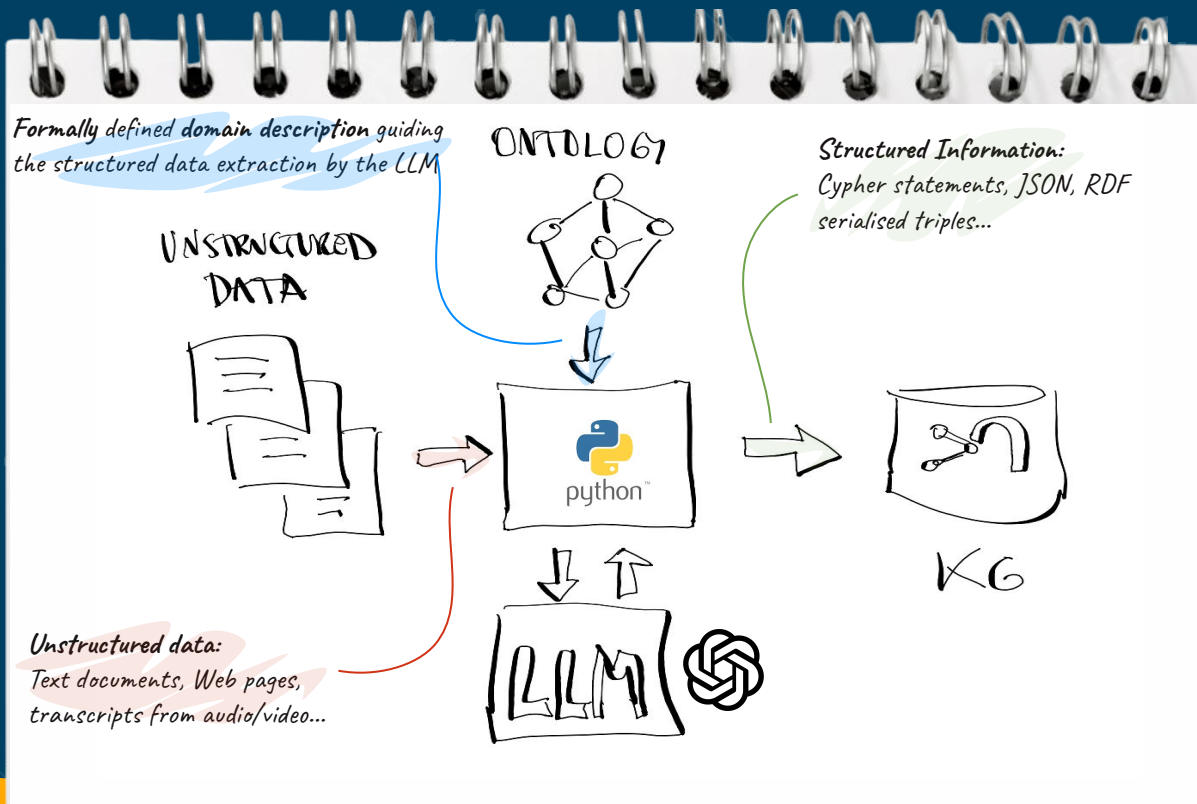 Formally defined domain description guiding
the structured data extraction by the LLM
ONTOLOGY
Structured Information:
Cypher statements, JSON, RDF
serialised triples...
UNSTRUCTURED
DATA
python™
KG
LLM
Unstructured data:
Text documents, Web pages,
transcripts from audio/video...